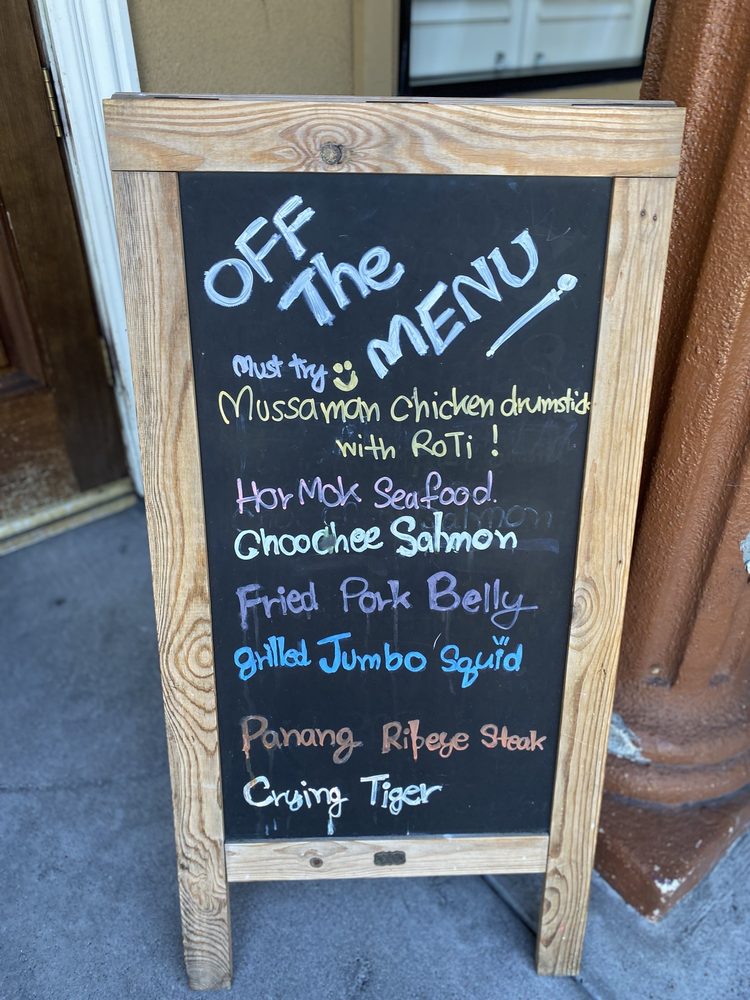 OFF
The
MENU!
Must try
Mussaman Chicken drumstick
with RoTi !
Hor Mok Seafood.
Choochee Salmon
Fried Pork Belly
grilled Jumbo Squid
Panang Ribeye Steak
Crying Tiger